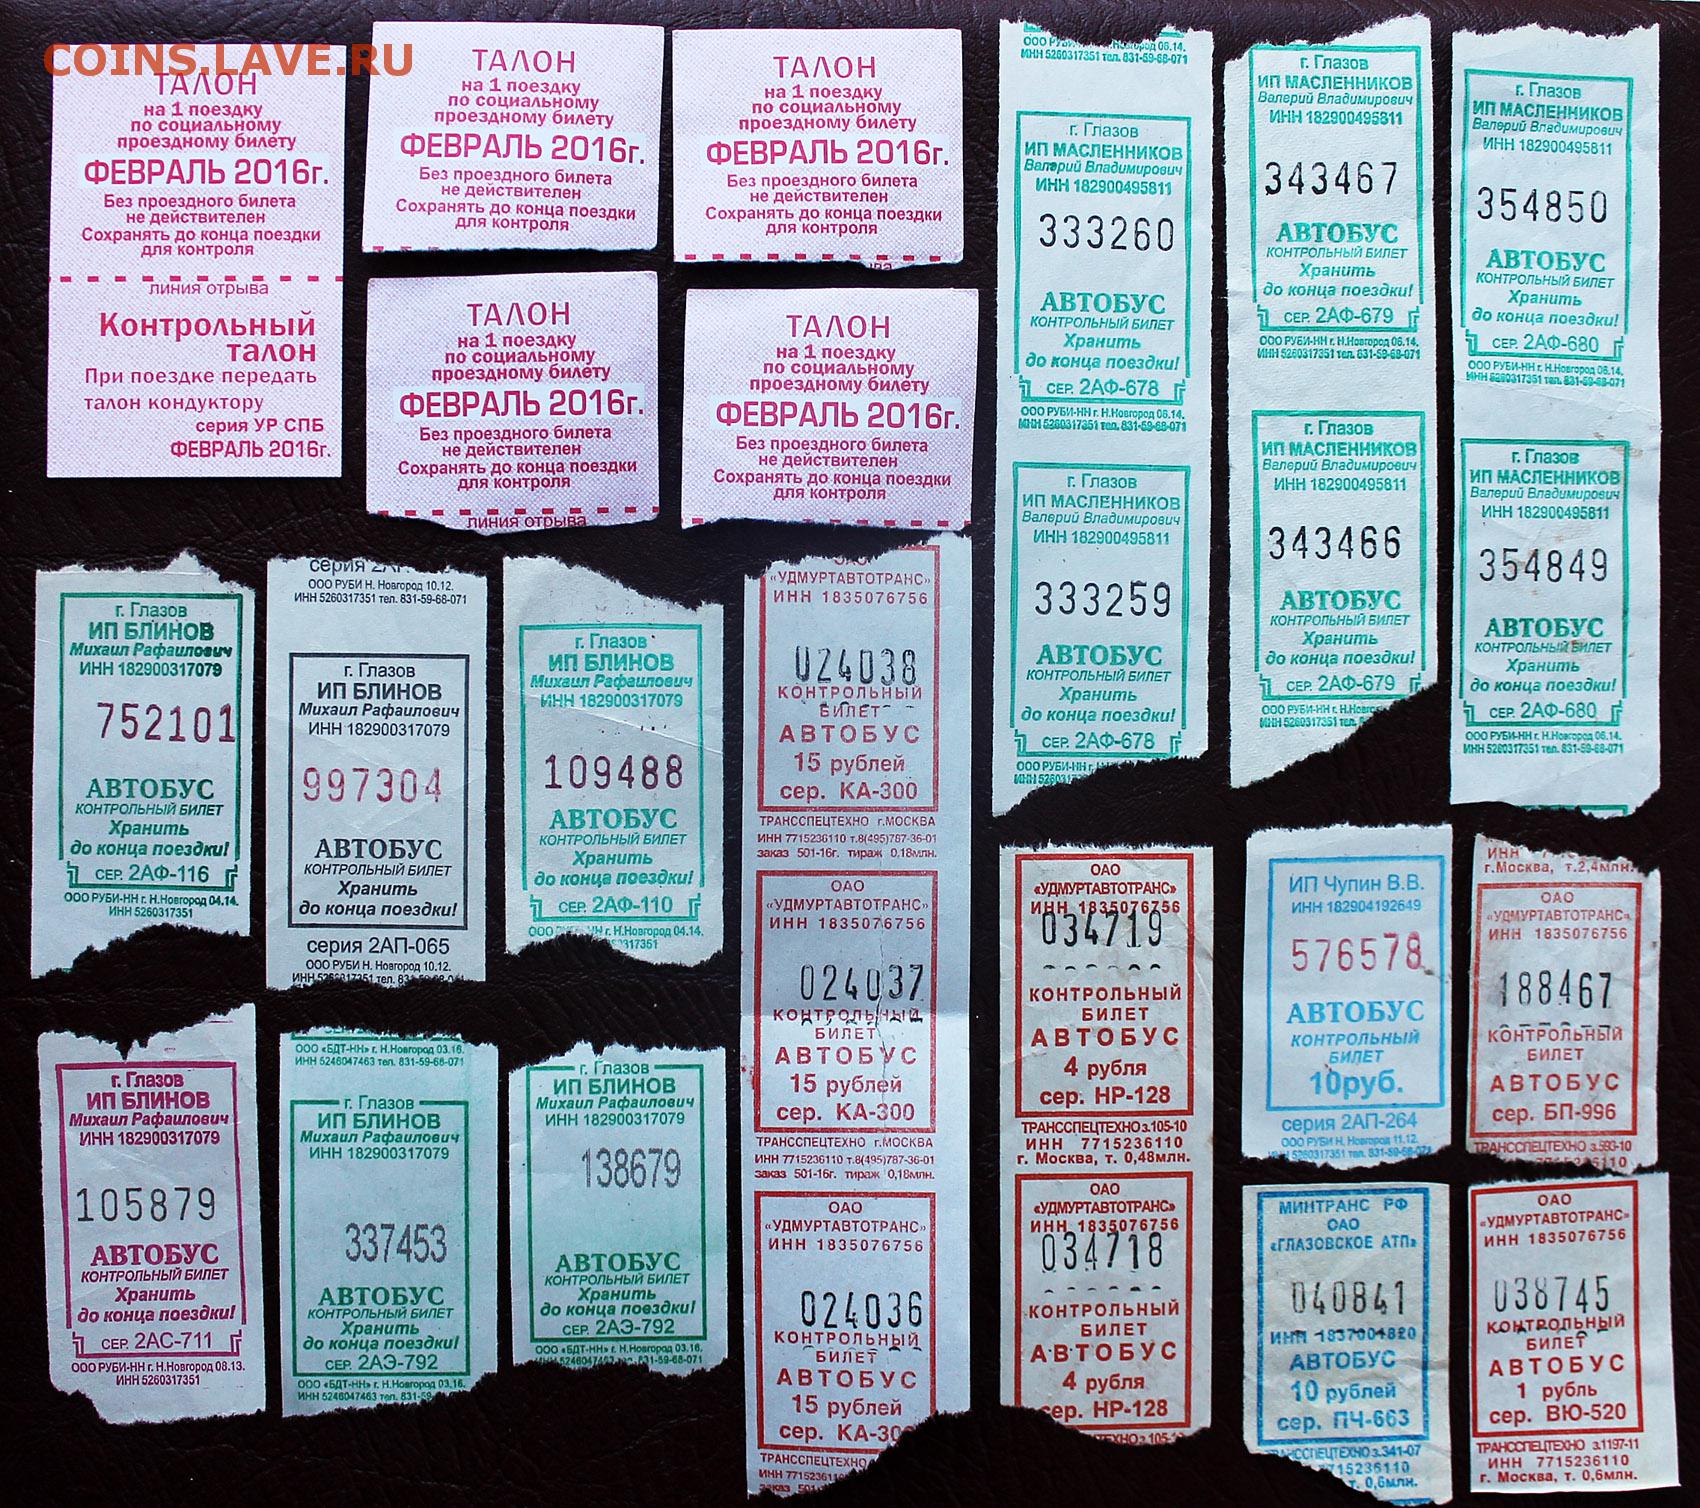 COINS.LAVE.RU
ТАЛОН
на 1 поездку
по социальному
проездному билету
ФЕВРАЛЬ 2016г.
Без проездного билета
не действителен
Сохранять до конца поездки
для контроля
линия отрыва
Контрольный
талон
При поездке передать
талон кондуктору
серия УР СПБ
ФЕВРАЛЬ 2016г.
ТАЛОН
на 1 поездку
по социальному
проездному билету
ФЕВРАЛЬ 2016г.
Без проездного билета
не действителен
Сохранять до конца поездки
для контроля
ТАЛОН
на 1 поездку
по социальному
проездному билету
ФЕВРАЛЬ 2016г.
Без проездного билета
не действителен
Сохранять до конца поездки
для контроля
ТАЛОН
на 1 поездку
по социальному
проездному билету
ФЕВРАЛЬ 2016г.
Без проездного билета
не действителен
Сохранять до конца поездки
для контроля
линия отрыва
ТАЛОН
на 1 поездку
по социальному
проездному билету
ФЕВРАЛЬ 2016г.
Без проездного билета
не действителен
Сохранять до конца поездки
для контроля
ИНН 5260317351 тел. 831-59-68-071
г. Глазов
ИП МАСЛЕННИКОВ
Валерий Владимирович
ИНН 182900495811
333260
АВТОБУС
КОНТРОЛЬНЫЙ БИЛЕТ
Хранить
до конца поездки!
СЕР. 2АФ-678
ООО РУБИ-НН г. Н.Новгород 06.14.
ИНН 5260317351 тел. 831-59-68-071
г. Глазов
ИП МАСЛЕННИКОВ
Валерий Владимирович
ИНН 182900495811
333259
АВТОБУС
КОНТРОЛЬНЫЙ БИЛЕТ
Хранить
до конца поездки!
СЕР. 2АФ-678
ООО РУБИ-НН г. Н.Новгород 06.14.
г. Глазов
ИП МАСЛЕННИКОВ
Валерий Владимирович
ИНН 182900495811
343467
АВТОБУС
КОНТРОЛЬНЫЙ БИЛЕТ
Хранить
до конца поездки!
СЕР. 2АФ-679
ООО РУБИ-НН г. Н.Новгород 06.14.
ИНН 5260317351 тел. 831-59-68-071
г. Глазов
ИП МАСЛЕННИКОВ
Валерий Владимирович
ИНН 182900495811
343466
АВТОБУС
КОНТРОЛЬНЫЙ БИЛЕТ
Хранить
до конца поездки!
СЕР. 2АФ-679
г. Глазов
ИП МАСЛЕННИКОВ
Валерий Владимирович
ИНН 182900495811
354850
АВТОБУС
КОНТРОЛЬНЫЙ БИЛЕТ
Хранить
до конца поездки!
СЕР. 2АФ-680
ООО РУБИ-НН г. Н.Новгород 06.14.
ИНН 5260317351 тел. 831-59-68-071
г. Глазов
ИП МАСЛЕННИКОВ
Валерий Владимирович
ИНН 182900495811
354849
АВТОБУС
КОНТРОЛЬНЫЙ БИЛЕТ
Хранить
до конца поездки!
СЕР. 2АФ-680
ООО РУБИ-НН г. Н.Новгород 06.14.
ИНН 5260317351 тел. 831-59-68-071
г. Глазов
ИП БЛИНОВ
Михаил Рафаилович
ИНН 182900317079
752101
АВТОБУС
КОНТРОЛЬНЫЙ БИЛЕТ
Хранить
до конца поездки!
СЕР. 2АФ-116
ООО РУБИ-НН г. Н.Новгород 04.14.
ИНН 5260317351
ООО РУБИ Н. Новгород 10.12.
ИНН 5260317351 тел. 831-59-68-071
г. Глазов
ИП БЛИНОВ
Михаил Рафаилович
ИНН 182900317079
997304
АВТОБУС
КОНТРОЛЬНЫЙ БИЛЕТ
Хранить
до конца поездки!
серия 2АП-065
ООО РУБИ Н. Новгород 10.12.
г. Глазов
ИП БЛИНОВ
Михаил Рафаилович
ИНН 182900317079
109488
АВТОБУС
КОНТРОЛЬНЫЙ БИЛЕТ
Хранить
до конца поездки!
СЕР. 2АФ-110
Н.Новгород 04.14.
г. Глазов
ИП БЛИНОВ
Михаил Рафаилович
ИНН 182900317079
105879
АВТОБУС
КОНТРОЛЬНЫЙ БИЛЕТ
Хранить
до конца поездки!
СЕР. 2АС-711
ООО РУБИ-НН г. Н.Новгород 08.13.
ИНН 5260317351
ООО «БДТ-НН» г. Н.Новгород 03.16.
ИНН 5246047463 тел. 831-59-68-071
г. Глазов
ИП БЛИНОВ
Михаил Рафаилович
ИНН 182900317079
337453
АВТОБУС
КОНТРОЛЬНЫЙ БИЛЕТ
Хранить
до конца поездки!
СЕР. 2АЭ-792
ООО «БДТ-НН» г. Н.Новгород 03.16.
ИНН 5246047463 тел.
г. Глазов
ИП БЛИНОВ
Михаил Рафаилович
ИНН 182900317079
138679
АВТОБУС
КОНТРОЛЬНЫЙ БИЛЕТ
Хранить
до конца поездки!
СЕР. 2АЭ-792
ООО «БДТ-НН» г. Н.Новгород 03.16.
«УДМУРТАВТОТРАНС»
ИНН 1835076756
024038
КОНТРОЛЬНЫЙ
БИЛЕТ
АВТОБУС
15 рублей
сер. КА-300
ТРАНССПЕЦТЕХНО г.МОСКВА
ИНН 7715236110 т.8(495)787-36-01
заказ 501-16г. тираж 0,18млн.
ОАО
«УДМУРТАВТОТРАНС»
ИНН 1835076756
024037
КОНТРОЛЬНЫЙ
БИЛЕТ
АВТОБУС
15 рублей
сер. КА-300
ТРАНССПЕЦТЕХНО г.МОСКВА
ИНН 7715236110 т.8(495)787-36-01
заказ 501-16г. тираж 0,18млн.
ОАО
«УДМУРТАВТОТРАНС»
ИНН 1835076756
024036
КОНТРОЛЬНЫЙ
БИЛЕТ
АВТОБУС
15 рублей
сер. КА-300
ТРАНССПЕЦТЕХНО
ИНН 7715236110
ОАО
«УДМУРТАВТОТРАНС»
ИНН 1835076756
034719
КОНТРОЛЬНЫЙ
БИЛЕТ
АВТОБУС
4 рубля
сер. НР-128
ТРАНССПЕЦТЕХНО з.105-10
ИНН 7715236110
г. Москва, т. 0,48млн.
ОАО
«УДМУРТАВТОТРАНС»
ИНН 1835076756
034718
КОНТРОЛЬНЫЙ
БИЛЕТ
АВТОБУС
4 рубля
сер. НР-128
ИП Чупин В.В.
ИНН 182904192649
576578
АВТОБУС
КОНТРОЛЬНЫЙ
БИЛЕТ
10руб.
серия 2АП-264
ООО РУБИ Н. Новгород 11.12.
г.Москва, т.2,4млн.
ОАО
«УДМУРТАВТОТРАНС»
ИНН 1835076756
188467
КОНТРОЛЬНЫЙ
БИЛЕТ
АВТОБУС
сер. БП-996
ТРАНССПЕЦТЕХНО з.593-10
МИНТРАНС РФ
ОАО
«ГЛАЗОВСКОЕ АТП»
040841
ИНН 1837004820
АВТОБУС
10 рублей
сер. ПЧ-663
ТРАНССПЕЦТЕХНО з.341-07
7715236110
т. 0,6млн.
ОАО
«УДМУРТАВТОТРАНС»
ИНН 1835076756
038745
КОНТРОЛЬНЫЙ
БИЛЕТ
АВТОБУС
1 рубль
сер. ВЮ-520
ТРАНССПЕЦТЕХНО з.1197-11
ИНН 7715236110
г. Москва, т. 0,6млн.